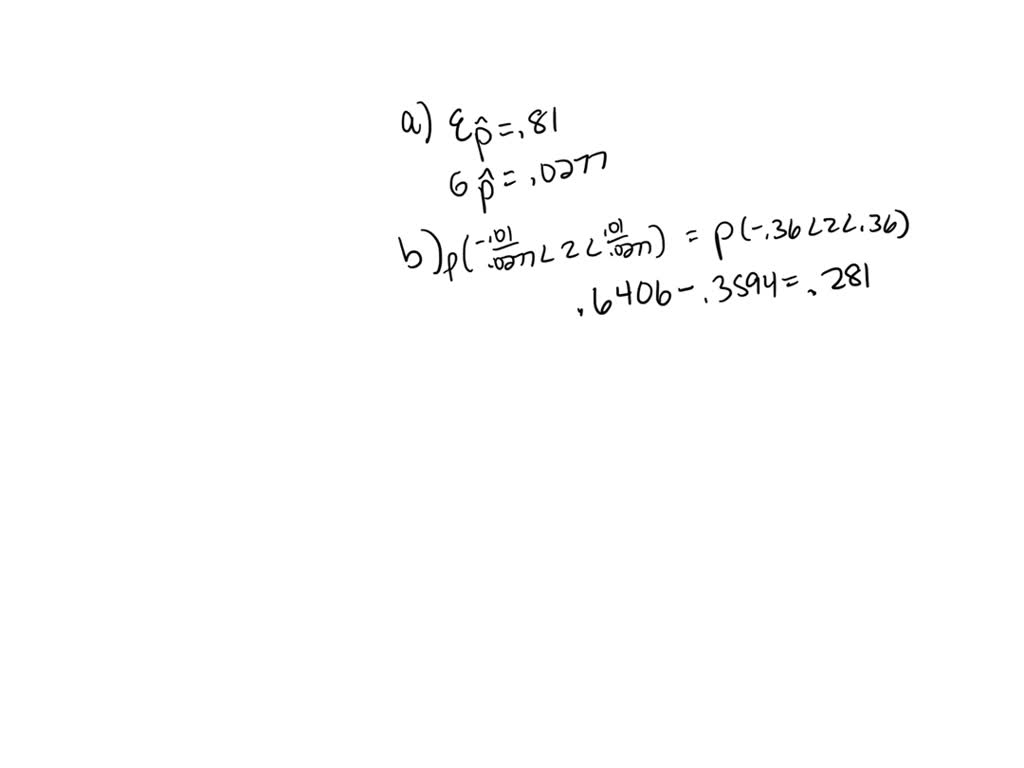 a) ε p̂ = .81
σ p̂ = .0277
b) P(-.01/.0277 < z < .01/.0277) = P(-.36 < z < .36)
.6406 - .3594 = .281